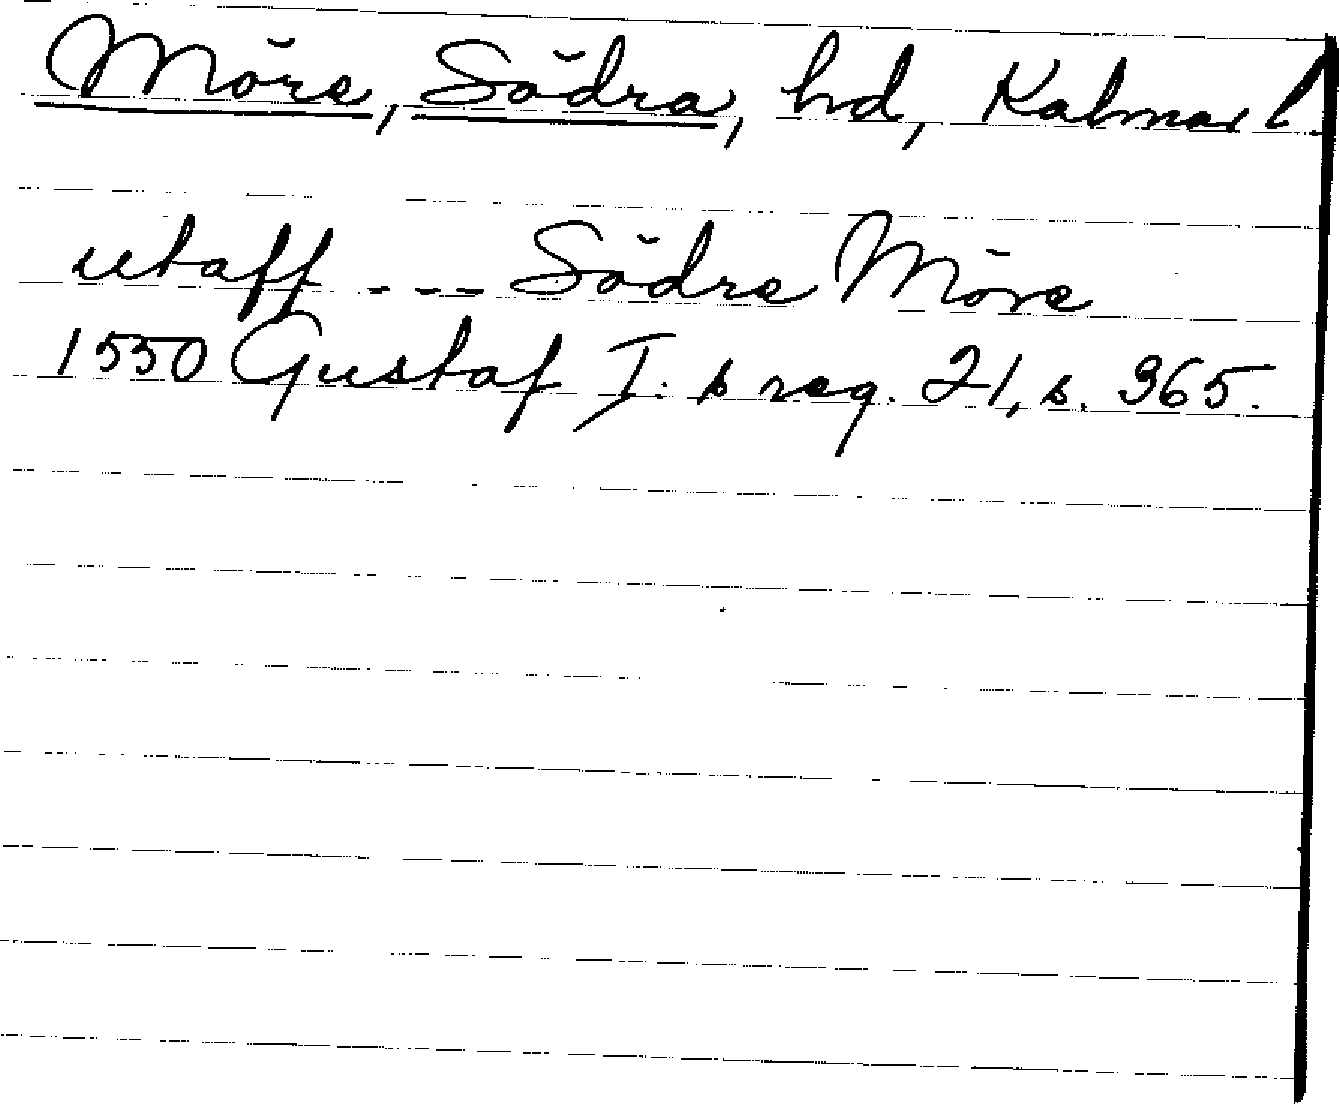 Möre, Södra, hd, Kalmar l
utaff --- Södre Möre
1550 Gustaf I:s reg. 21, s. 365.